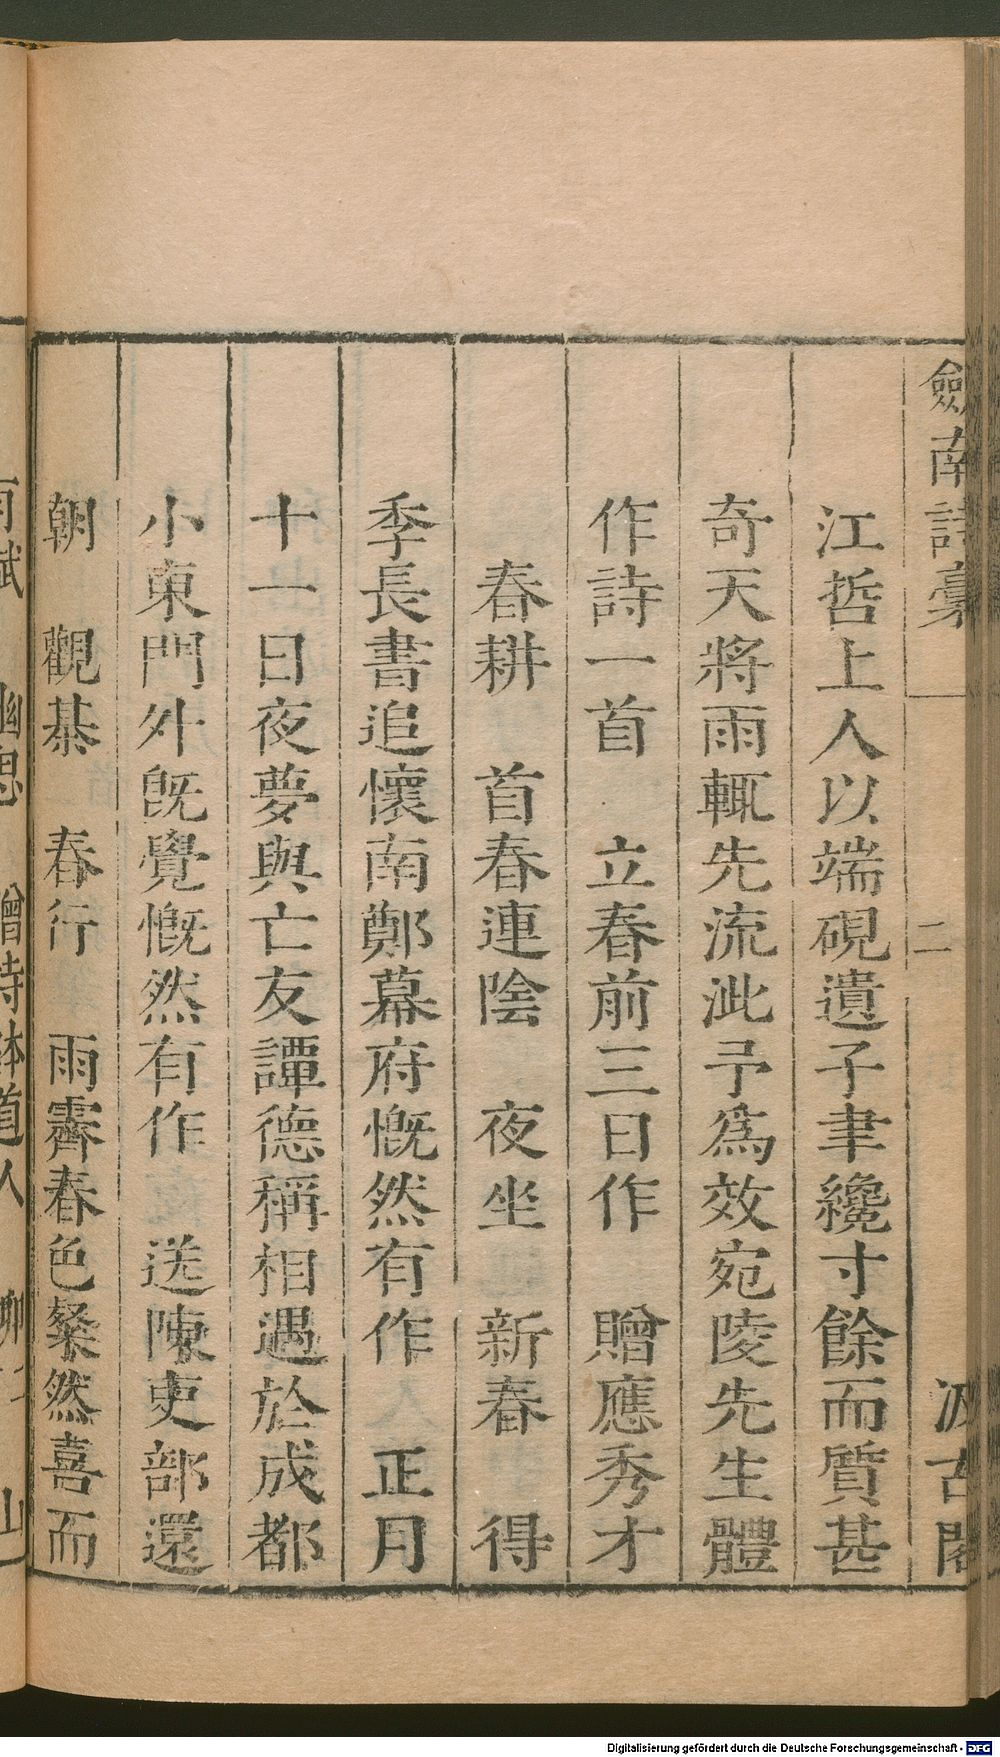 劍南詩稾
二
汲古閣
江哲上人以端硯遺子聿纔寸餘而質甚
奇天將雨輒先流泚予爲效宛陵先生體
作詩一首　立春前三日作　贈應秀才
春耕　首春連陰　夜坐　新春　得
季長書追懷南鄭幕府慨然有作　正月
十一日夜夢與亡友譚德稱相遇於成都
小東門外旣覺慨然有作　送陳吏部還
朝　觀棊　春行　雨霽春色粲然喜而
Digitalisierung gefördert durch die Deutsche Forschungsgemeinschaft - DFG